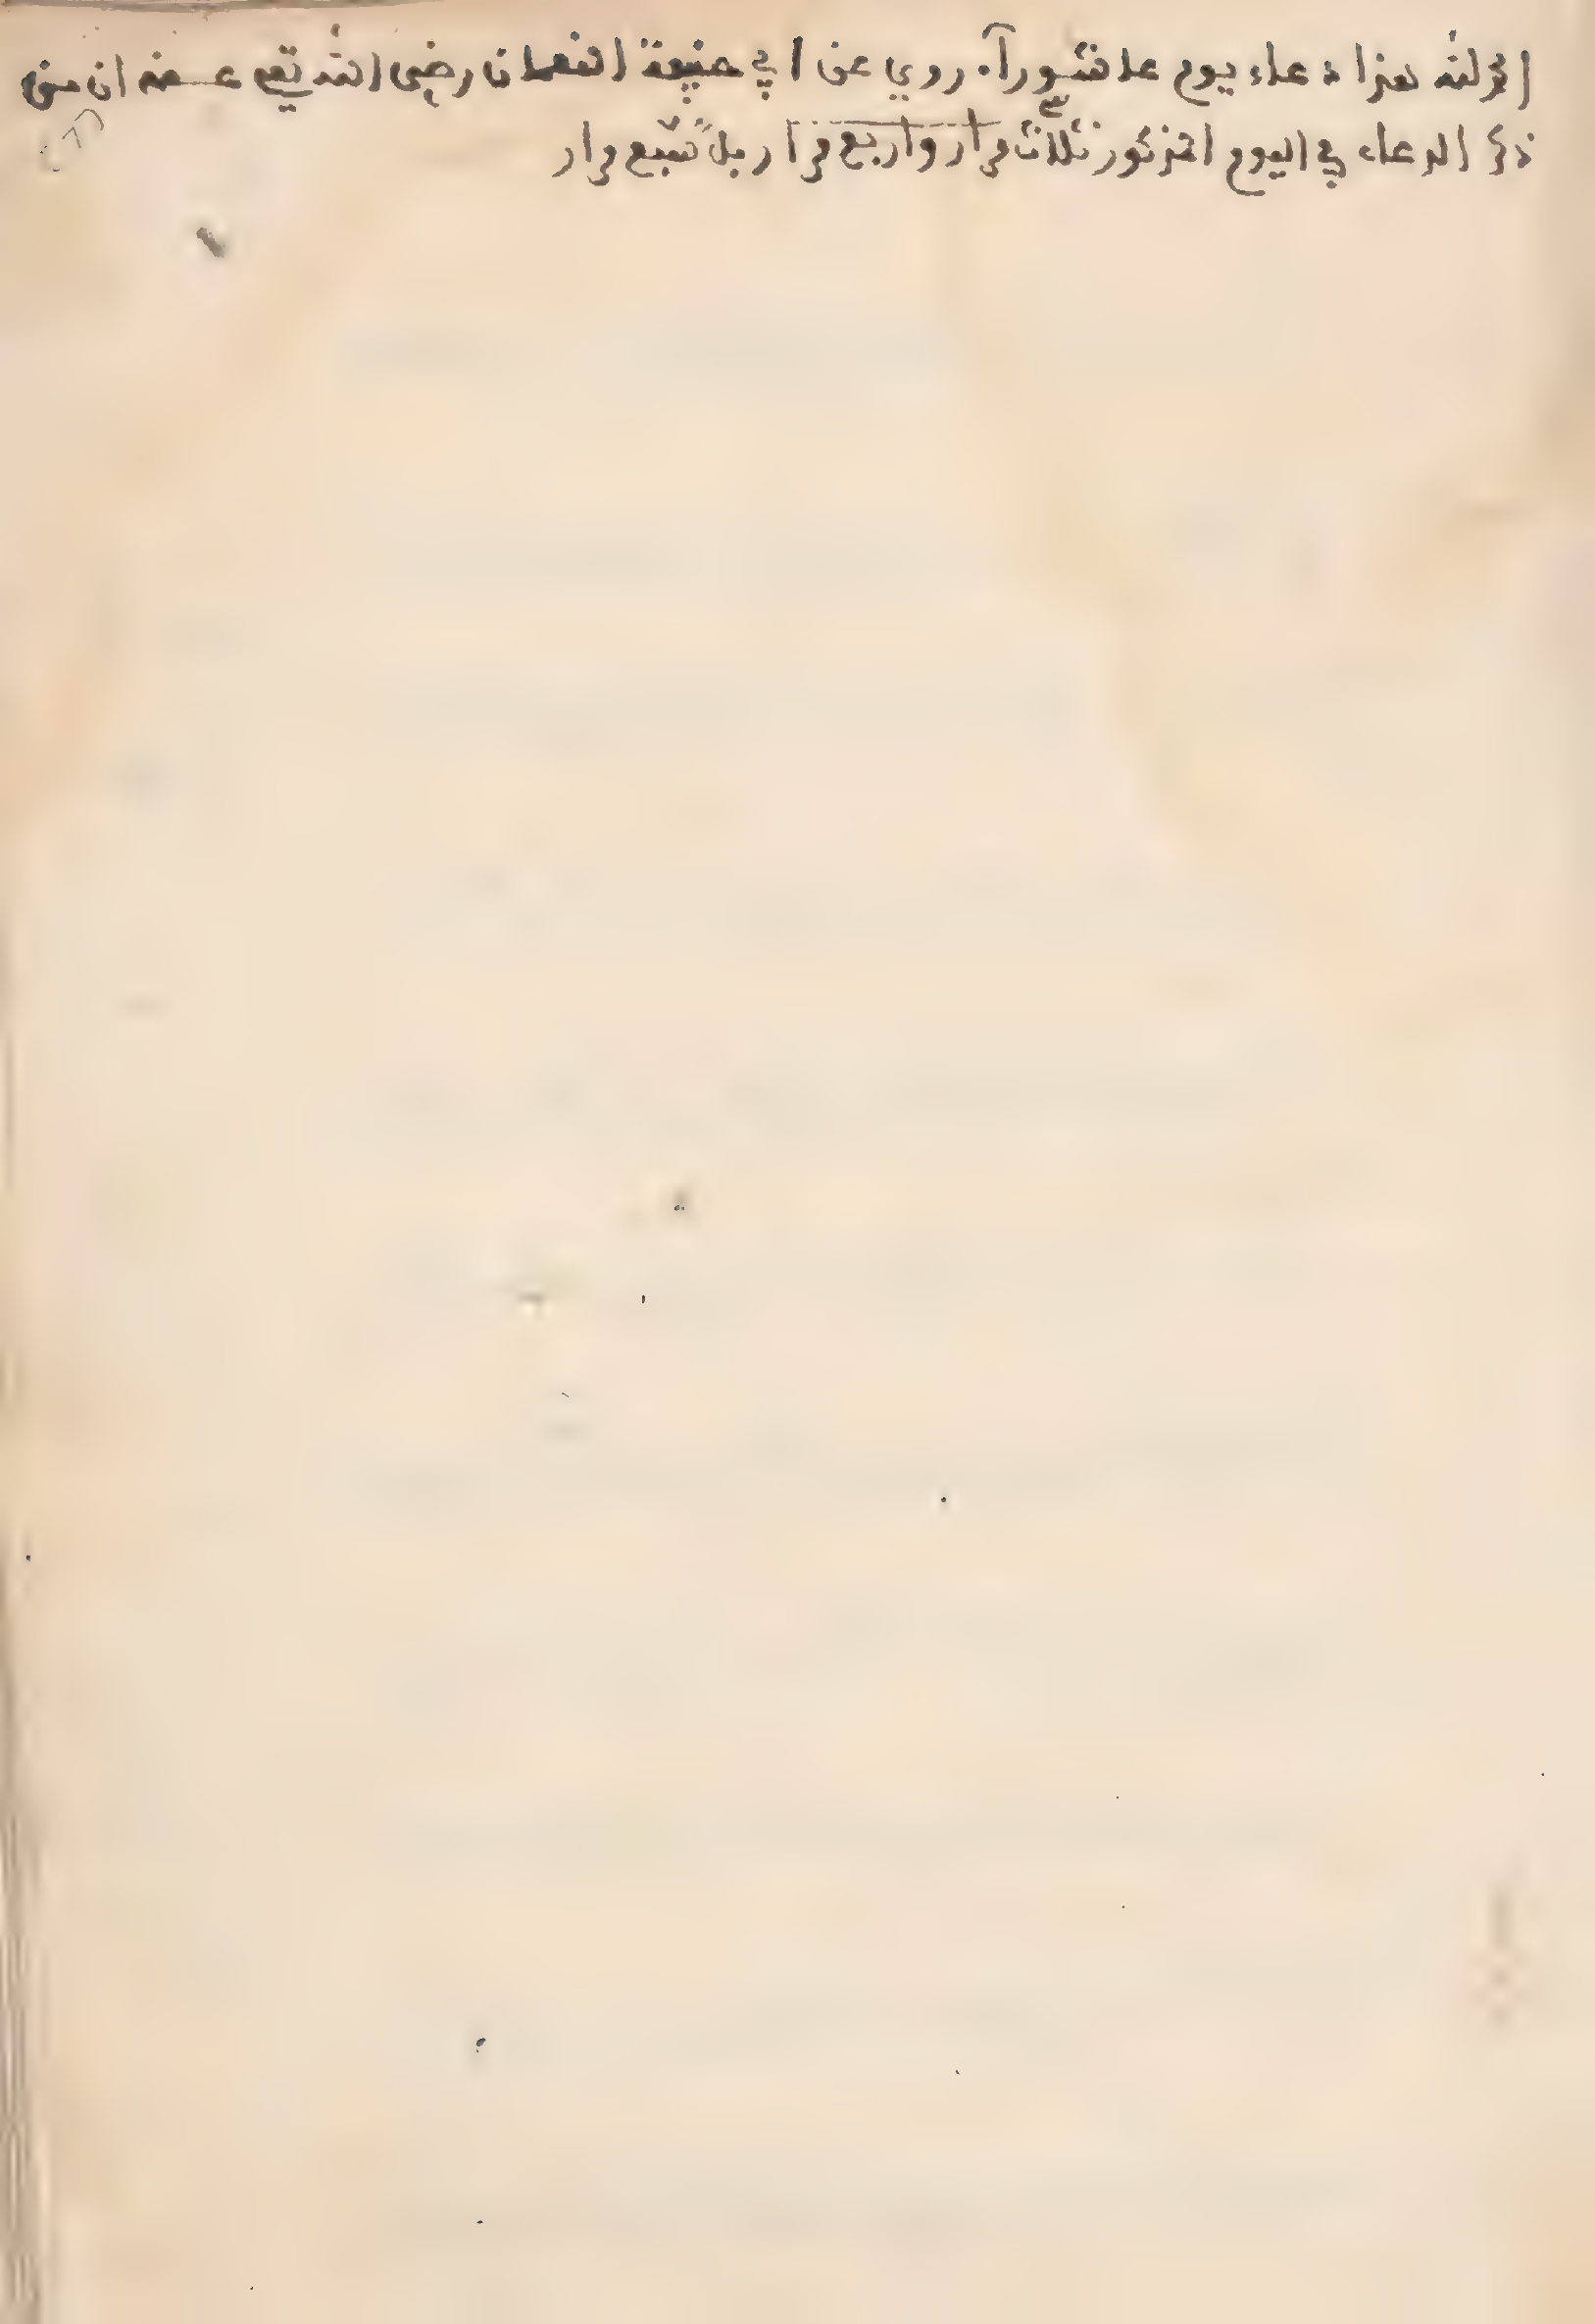 الحمد لله هذا دعاء يوم عاشورآء روي عن ابي حنيفة النعمان رضي الله تعلى عنه ان من
ذكر الدعاء في اليوم المذكور ثلاث مرار واربع مرار بل سبع مرار